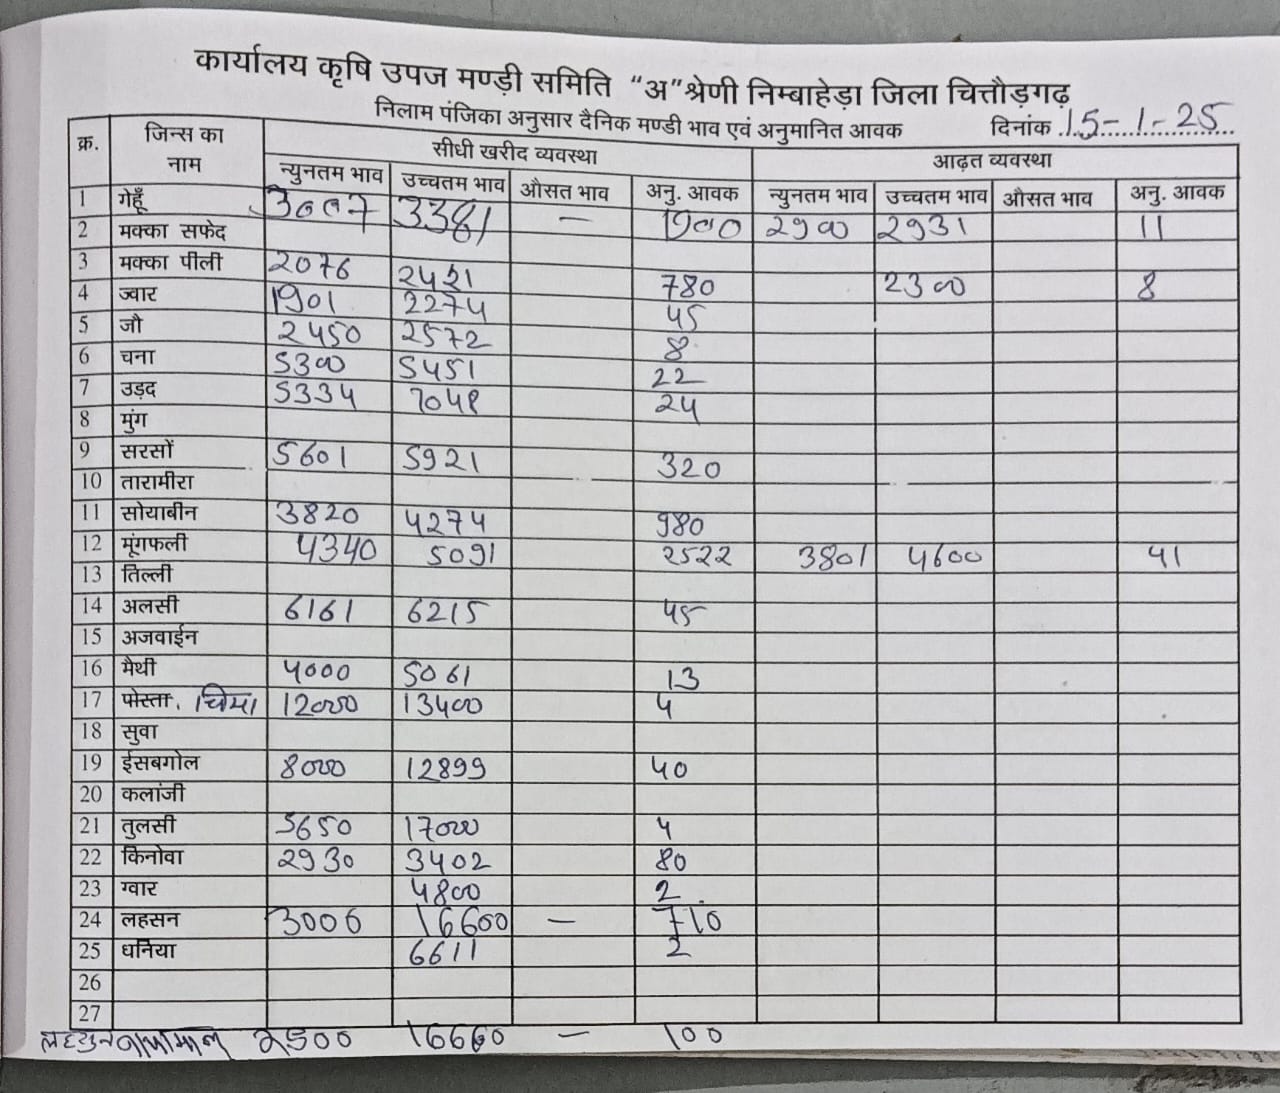 कार्यालय कृषि उपज मण्डी समिति "अ" श्रेणी निम्बाहेड़ा जिला चित्तौड़गढ़
निलाम पंजिका अनुसार दैनिक मण्डी भाव एवं अनुमानित आवक दिनांक 15-1-25
क्र. जिन्स का नाम सीधी खरीद व्यवस्था आढ़त व्यवस्था
न्युनतम भाव उच्चतम भाव औसत भाव अनु. आवक न्युनतम भाव उच्चतम भाव औसत भाव अनु. आवक
1 गेहूँ 3007 3381 — 1900 2900 2931 11
2 मक्का सफेद
3 मक्का पीली 2076 2421 780 2300 8
4 ज्वार 1901 2274 45
5 जौ 2450 2572 8
6 चना 5300 5451 22
7 उड़द 5334 7041 24
8 मुंग
9 सरसों 5601 5921 320
10 तारामीरा
11 सोयाबीन 3820 4274 980
12 मूंगफली 4340 5091 2522 3801 4600 41
13 तिल्ली
14 अलसी 6161 6215 45
15 अजवाईन
16 मैथी 4000 5061 13
17 पोस्ता. चिया 12000 13400 4
18 सुवा
19 ईसबगोल 8000 12899 40
20 कलांजी
21 तुलसी 5650 17000 4
22 किनोवा 2930 3402 80
23 ग्वार 4800 2
24 लहसन 3006 16600 — 710
25 धनिया 6611 2
26
27
2500 16660 — 100